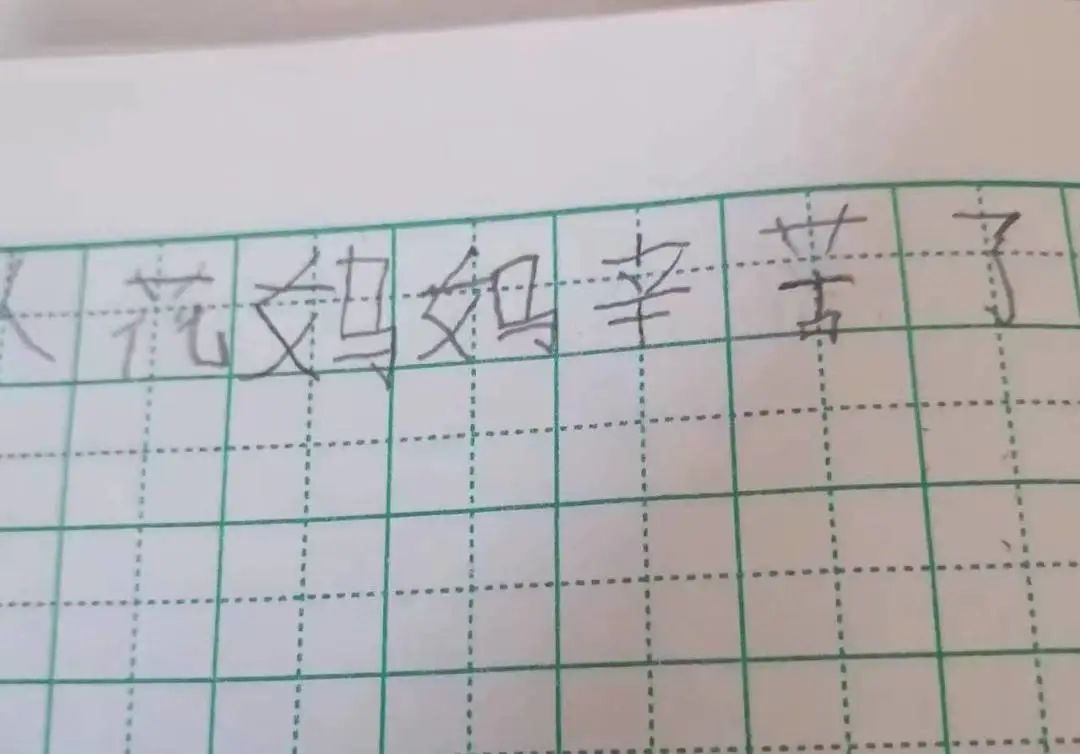 花妈妈辛苦了